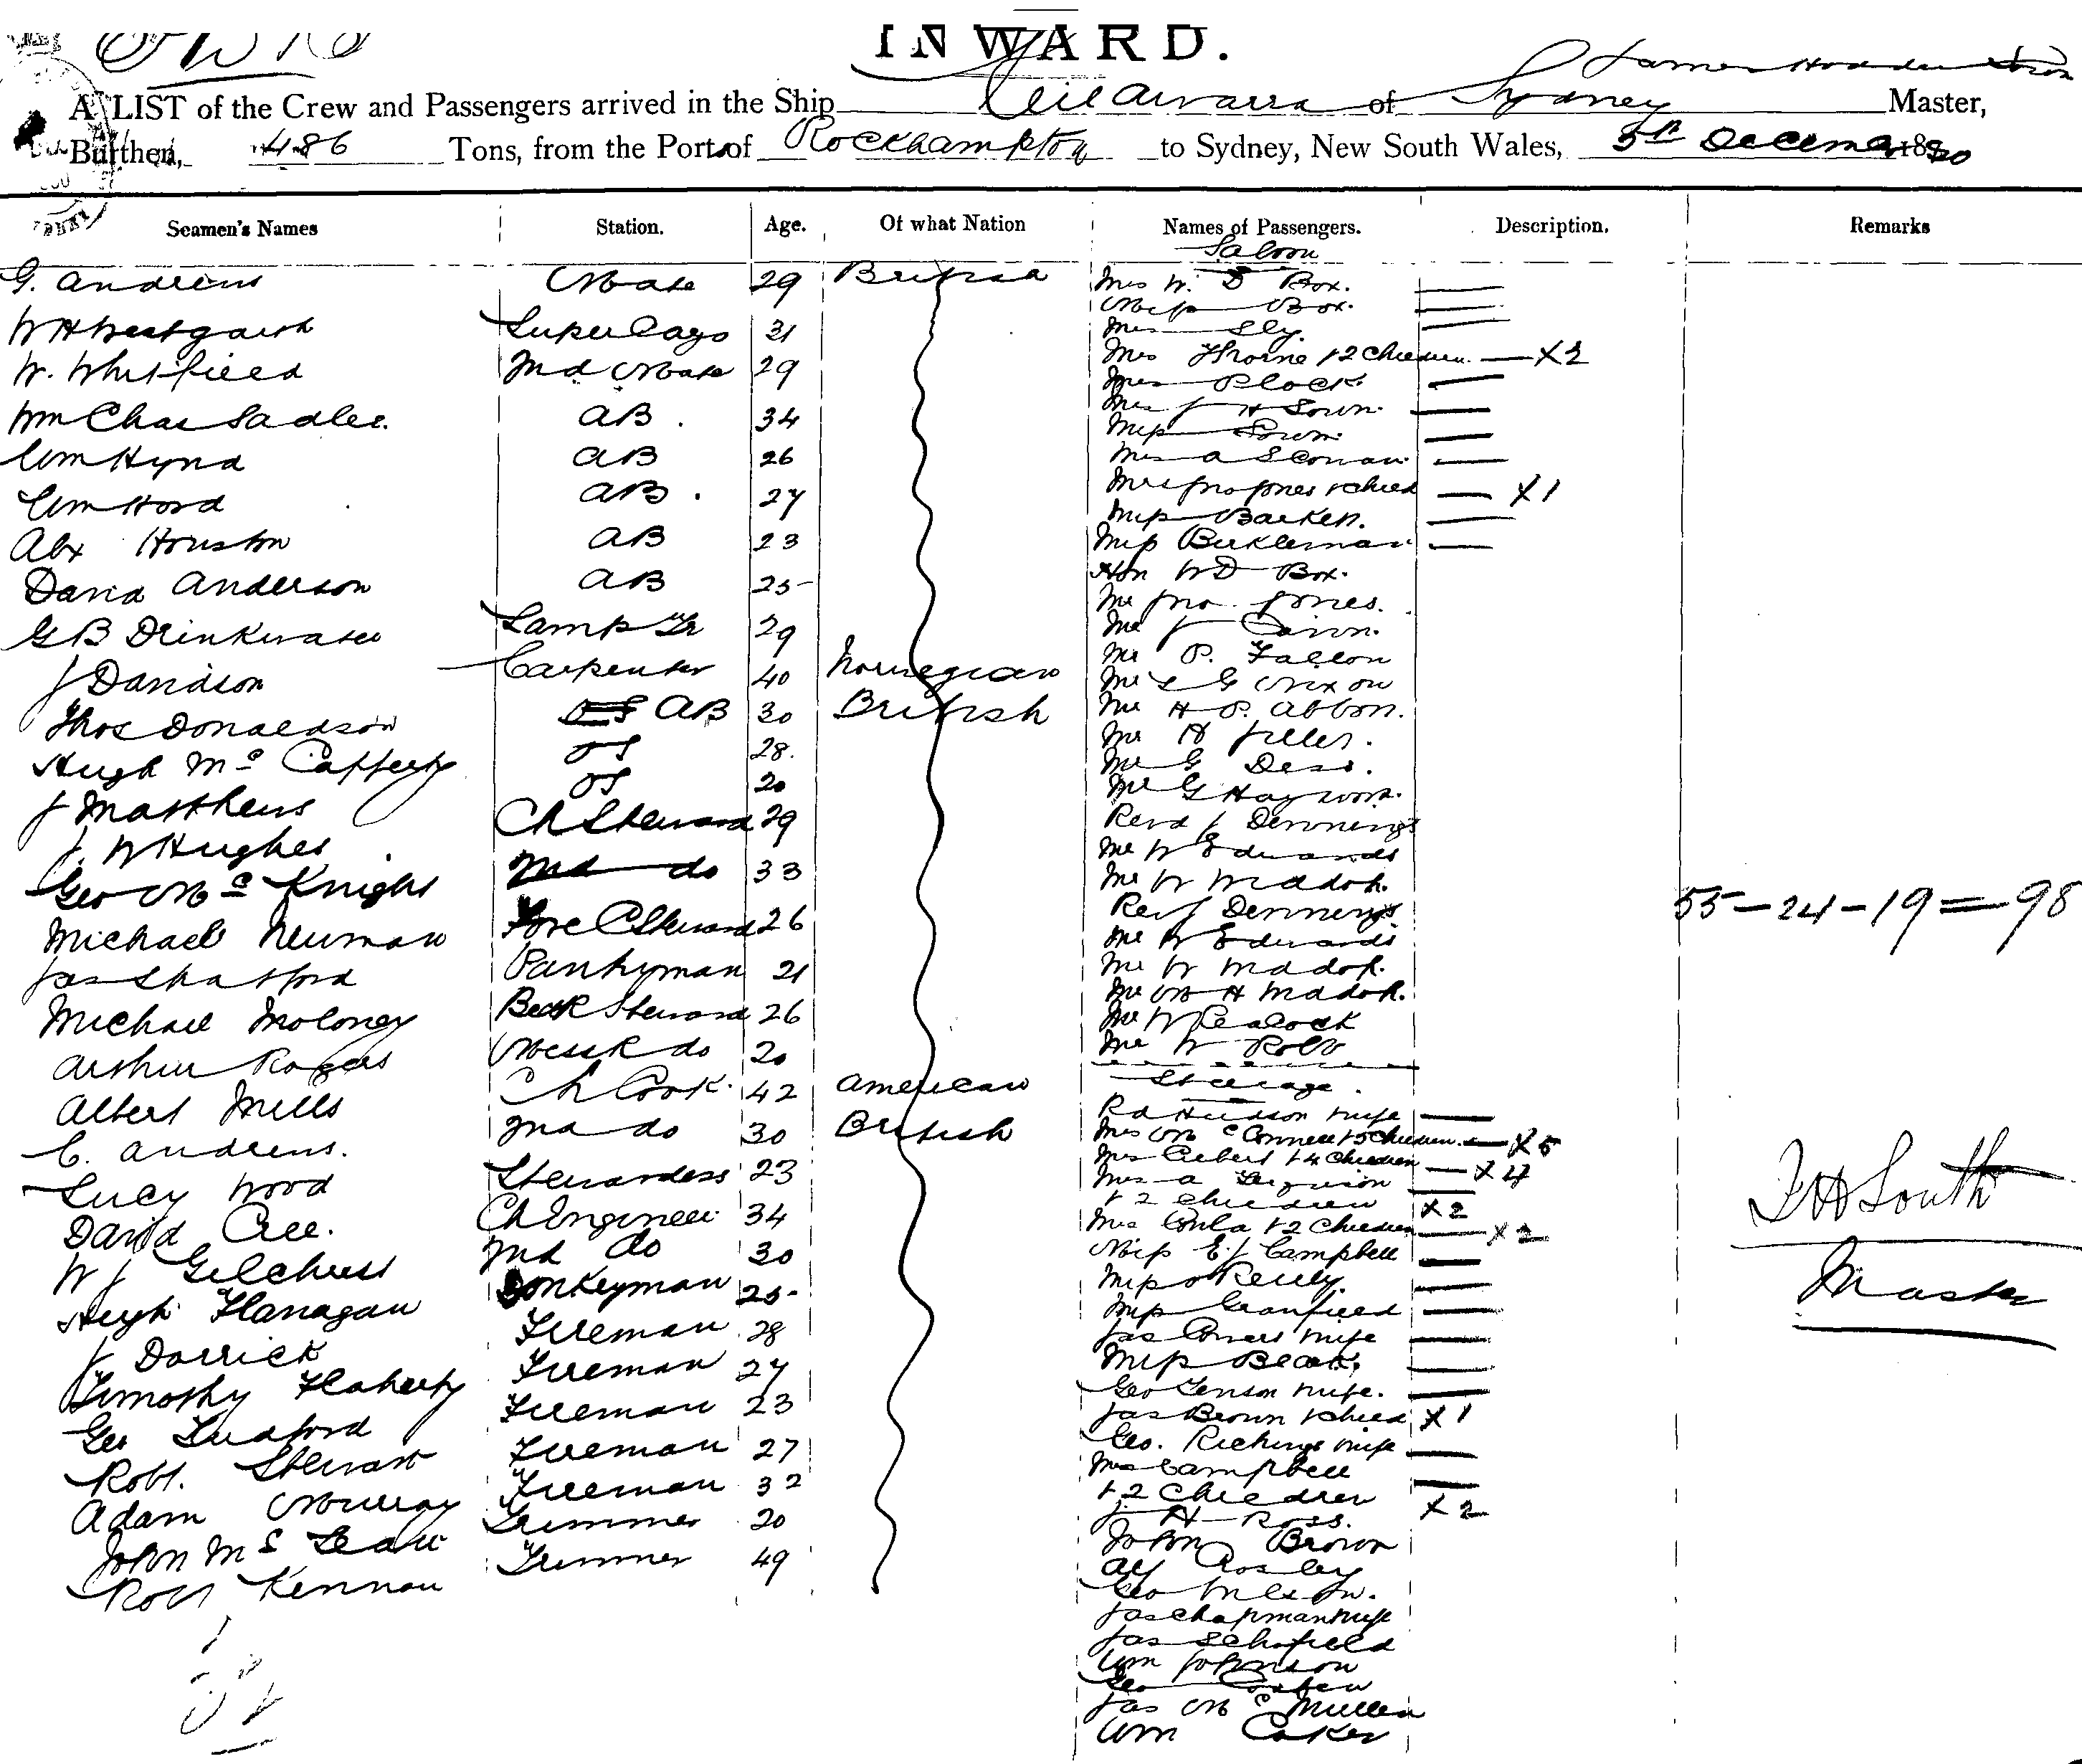 INWARD.
A LIST of the Crew and Passengers arrived in the Ship of Sydney Master,
Burthen, 486 Tons, from the Port of Rockhampton to Sydney, New South Wales, 5th December 1890
Seamen's Names Station. Age. Of what Nation Names of Passengers. Description. Remarks
Saloon
G. Andrews Mate 29 British Mrs W. D Box.
Miss Box.
W H Westgarth Super Cago 31 Mrs Sly
W. Whitfield 2nd Mate 29 Mrs Thorne & 2 Children. — X 2
Mrs Plock
Wm Chas Sadler. AB. 34 Mrs J H
Miss
Wm Hynd AB 26 Mrs A
Wm Hord AB. 27 Mrs Jno Jones & Child — X 1
Miss Barken.
Alx Houston AB 23 Miss Birkleman
David Anderson AB 25 Hon W D Box.
Mr Jno. Jones.
G B Drinkwater Lamp Tr 29 Mr J
J Davidson Carpenter 40 Norwegian Mr P. Fallon
Mr L G Nixon
Thos Donaldson OS AB 30 British Mr H P. Abbott.
Hugh Mc Cafferty OS 28. Mr H
Mr G
J Matthews OS 20 Mr G Haywood.
J. W Hughes Ch Steward 29 Revd J Dennings
Mr W Edwards
Geo Mc Knight 2nd do 33 Mr W Maddok.
Michael Newman Fore C Steward 26 Rev J Dennings
Mr W Edwards
Jas Shatford Pantryman 21 Mr W Maddok.
Mr M H Maddok.
Michael Moloney Bedr Steward 26 Mr W Peacock
Arthur Rogers Messr do 20 Mr W Robb
Albert Mills Ch Cook. 42 American Steerage.
C. Andrews. 2nd do 30 British Rd Hudson wife
Mrs Mc Connell & 5 Children. — X 5
Lucy Wood Stewardess 23 Mrs & 4 Children — X 4
Mrs A Ferguson
& 2 Children X 2
David Cree. Ch Engineer 34 Mrs & 2 Children X 2
W J Gilchrist 2nd do 30 Miss E. J Campbell
Hugh Flanagan Donkeyman 25 Miss O Reilly.
J Darrick Fireman 28 Miss
Jas wife
Timothy Flaherty Fireman 27 Miss
Geo wife.
Geo Ludford Fireman 23 Jas Brown & Child X 1
Robt. Stewart Fireman 27 Geo. wife
Mrs Campbell
Adam Murray Fireman 32 & 2 Children X 2
John Mc Lean Trimmer 20 J. H Ross.
John Brown
Robt Kennan Trimmer 49 Alf
Geo
Jas Chapman wife
Jas Schofield
Wm Johnson
Geo
Jas Mc Mullen
Wm Coker
55 — 24 — 19 = 98
F H South
Master